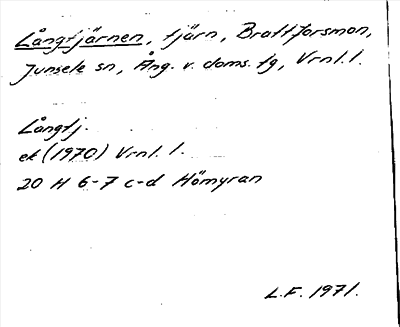 Långtjärnen, tjärn, Brattforsmon,
Junsele sn, Ång. v. doms. tg, Vrnl. l.
Långtj.
ek (1970) Vrnl. l.
20 H 6-7 c-d Hömyran
L.F. 1971.